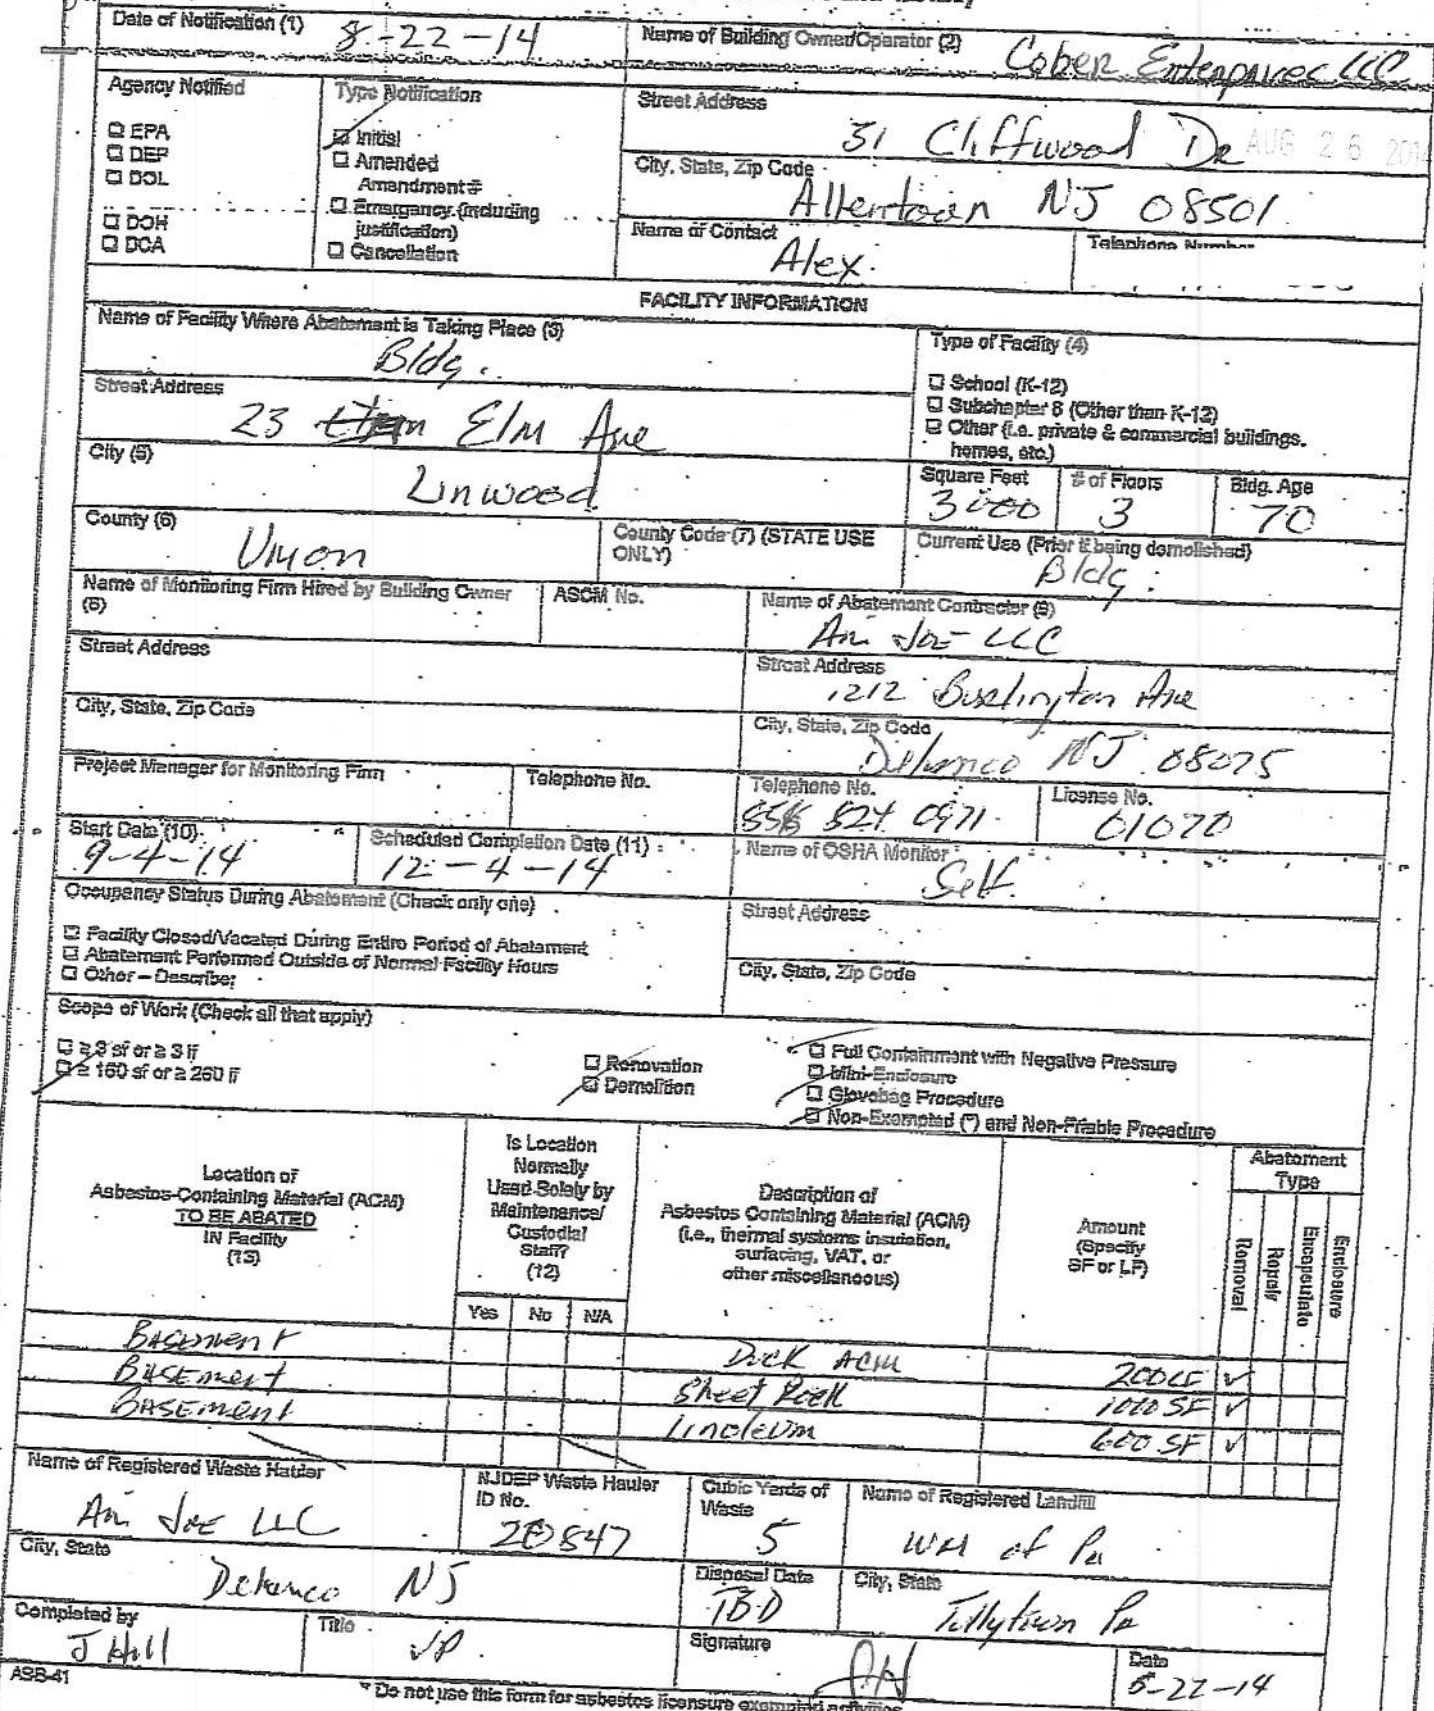 Date of Notification (1) 8-22-14
Name of Building Owner/Operator (2) Cober Enterprises LLC
Agency Notified
EPA
DEP
DOL
DOH
DCA
Type Notification
Initial
Amended
Amendment #
Emergency (including
justification)
Cancellation
Street Address
31 Cliffwood Dr
AUG 26 2014
City, State, Zip Code
Allentown NJ 08501
Name of Contact
Alex
Telephone Number
FACILITY INFORMATION
Name of Facility Where Abatement is Taking Place (3)
Bldg.
Street Address
23 Elm Ave
City (5)
Linwood
Type of Facility (4)
School (K-12)
Subchapter 8 (Other than K-12)
Other (i.e. private & commercial buildings,
homes, etc.)
Square Feet
3000
# of Floors
3
Bldg. Age
70
County (6)
Union
County Code (7) (STATE USE
ONLY)
Current Use (Prior if being demolished)
Bldg.
Name of Monitoring Firm Hired by Building Owner
(8)
ASCM No.
Name of Abatement Contractor (9)
Street Address
Street Address
1212 Burlington Ave
City, State, Zip Code
City, State, Zip Code
Delanco NJ 08075
Project Manager for Monitoring Firm
Telephone No.
Telephone No.
824 0971
License No.
01070
Start Date (10)
9-4-14
Scheduled Completion Date (11)
12-4-14
Name of OSHA Monitor
Self
Occupancy Status During Abatement (Check only one)
Facility Closed/Vacated During Entire Period of Abatement
Abatement Performed Outside of Normal Facility Hours
Other – Describe:
Street Address
City, State, Zip Code
Scope of Work (Check all that apply)
≥ 3 sf or ≥ 3 lf
≥ 160 sf or ≥ 260 lf
Renovation
Demolition
Full Containment with Negative Pressure
Mini-Enclosure
Glovebag Procedure
Non-Exempted (*) and Non-Friable Procedure
Location of
Asbestos-Containing Material (ACM)
TO BE ABATED
IN Facility
(13)
Is Location
Normally
Used Solely by
Maintenance/
Custodial
Staff?
(12)
Yes No N/A
Description of
Asbestos Containing Material (ACM)
(i.e., thermal systems insulation,
surfacing, VAT, or
other miscellaneous)
Amount
(Specify
SF or LF)
Abatement
Type
Removal
Repair
Encapsulate
Enclosure
Basement Duck ACM 200 LF ✓
Basement Sheet Rock 1000 SF ✓
Basement linoleum 600 SF ✓
Name of Registered Waste Hauler
NJDEP Waste Hauler
ID No.
20847
Cubic Yards of
Waste
5
Name of Registered Landfill
WM of Pa
City, State
Delanco NJ
Disposal Date
TBD
City, State
Tullytown Pa
Completed by
J Hill
Title
VP
Signature
Date
8-22-14
ASB-41
* Do not use this form for asbestos licensure exempted activities